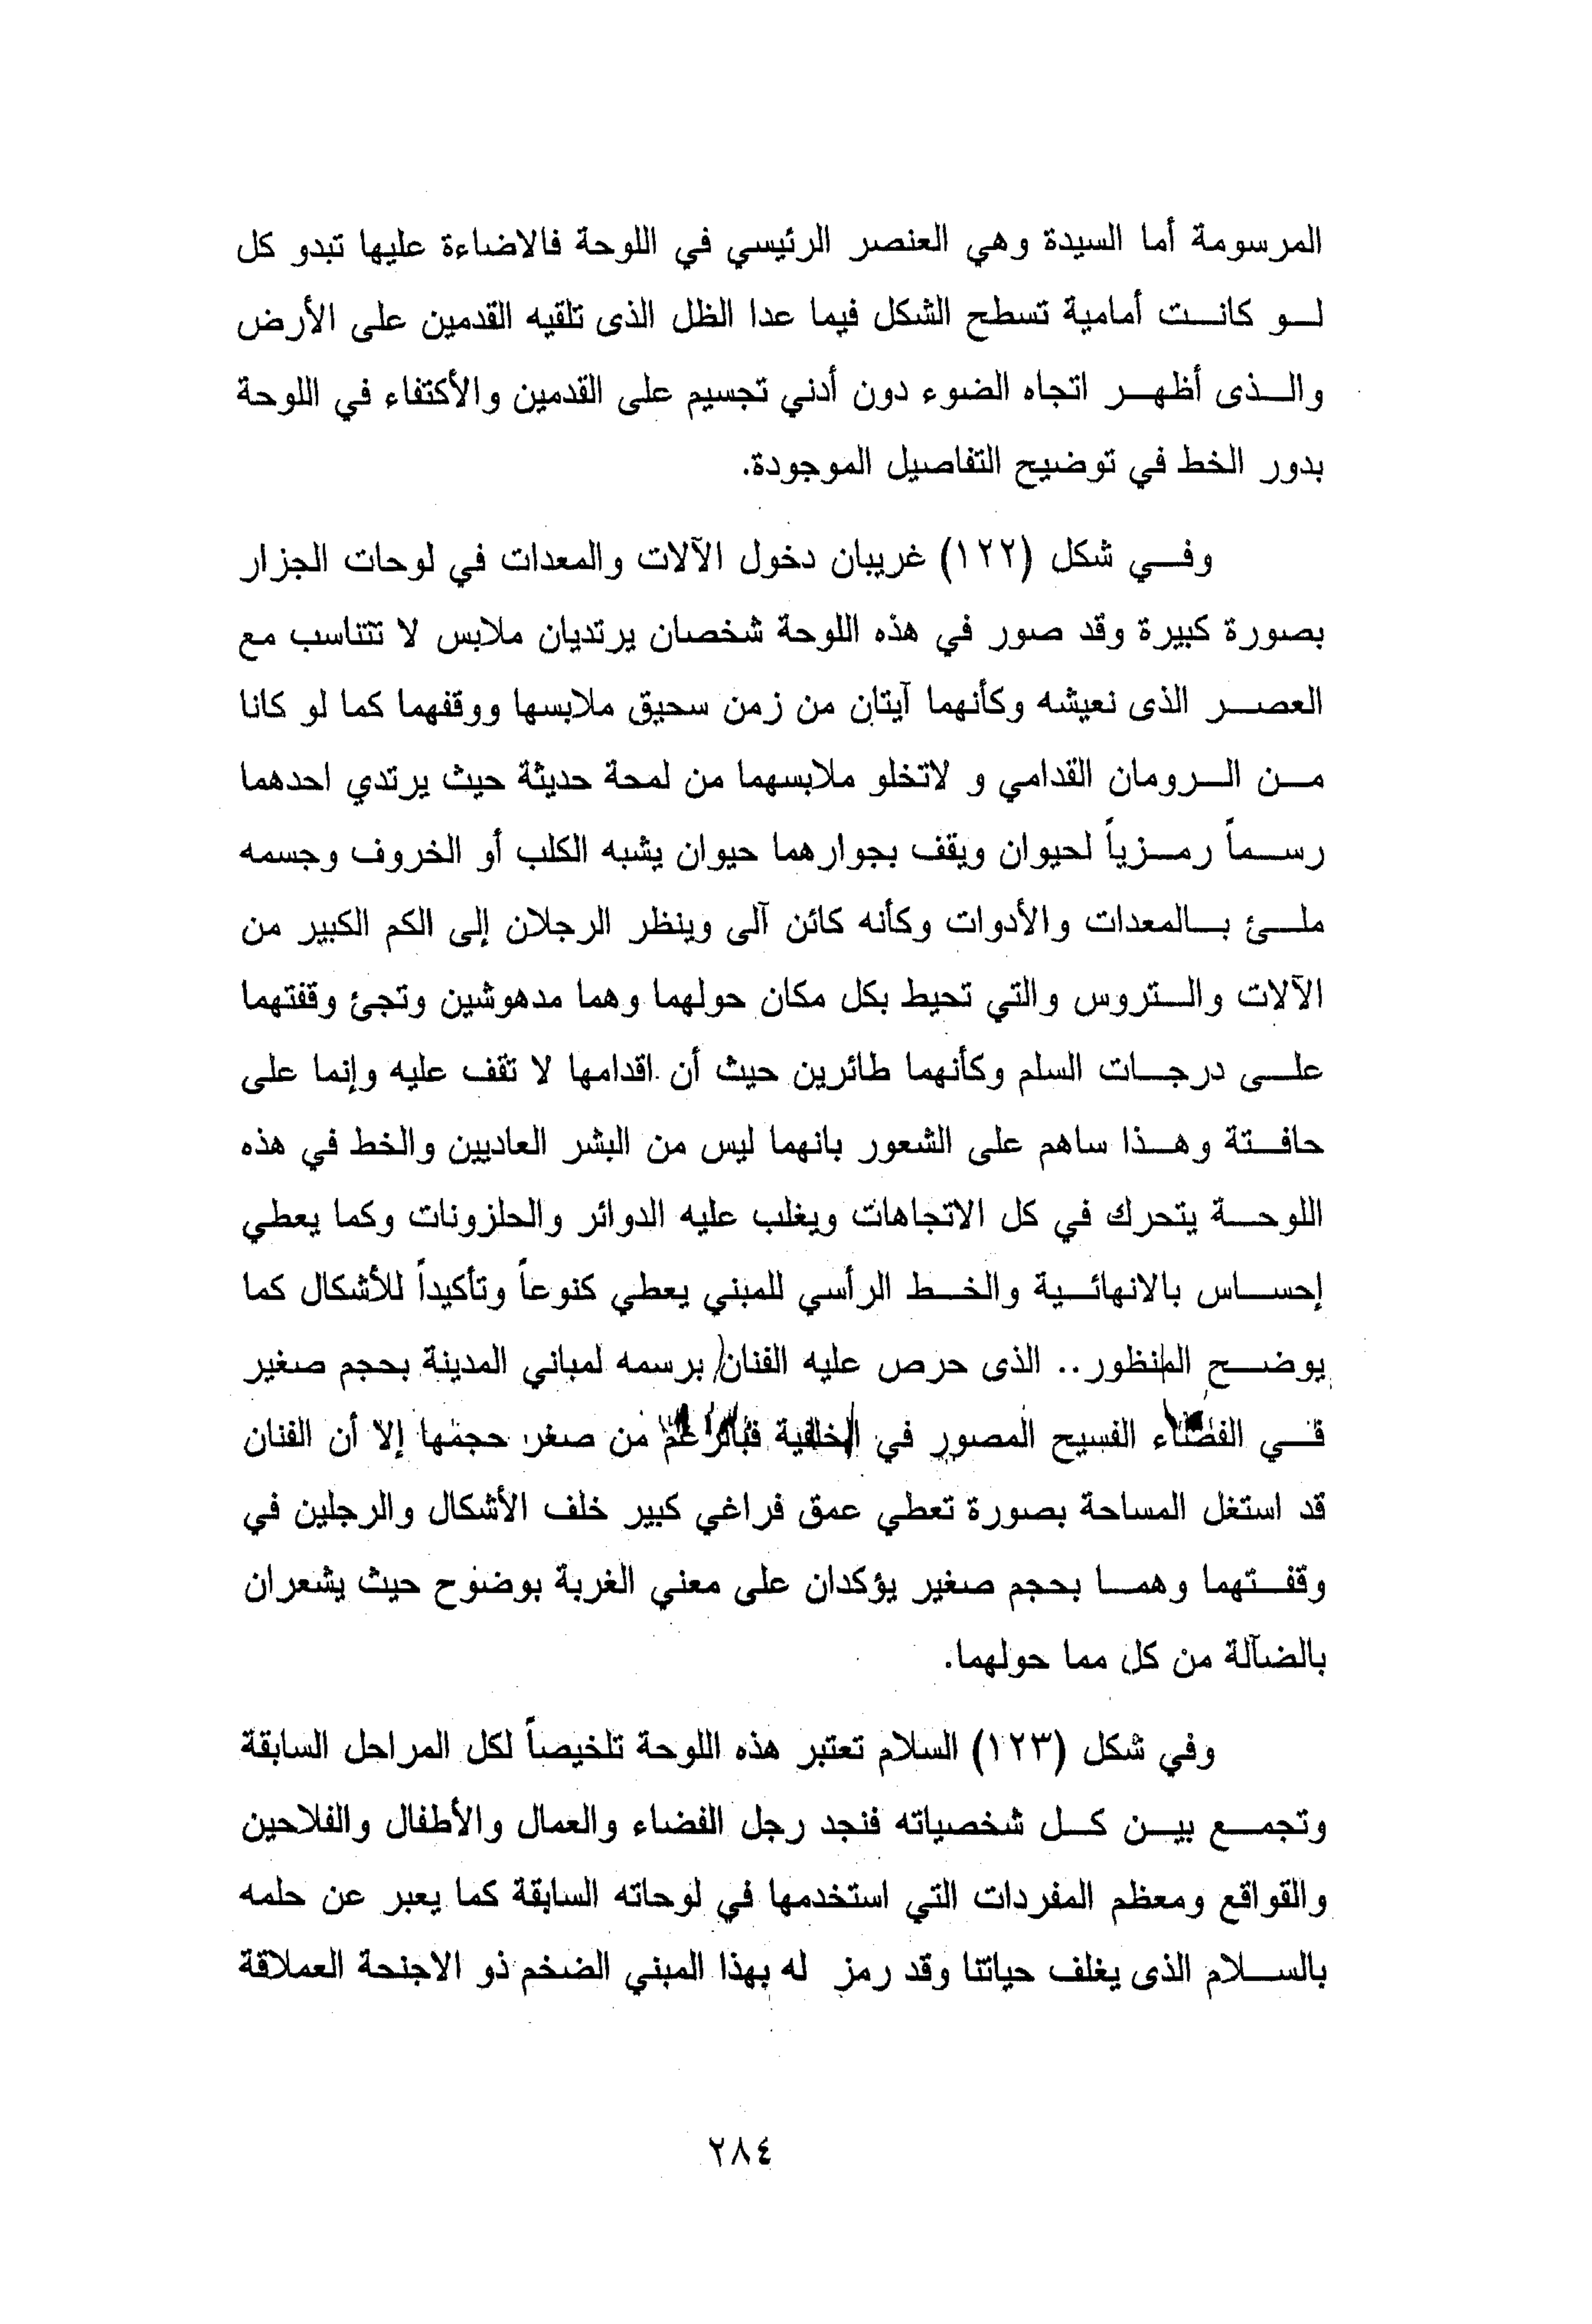 المرسومة أما السيدة وهي العنصر الرئيسي في اللوحة فالاضاءة عليها تبدو كل
لو كانت أمامية تسطح الشكل فيما عدا الظل الذى تلقيه القدمين على الأرض
والذى أظهر اتجاه الضوء دون أدني تجسيم على القدمين والأكتفاء في اللوحة
بدور الخط في توضيح التفاصيل الموجودة.
وفي شكل (١٢٢) غريبان دخول الآلات والمعدات في لوحات الجزار
بصورة كبيرة وقد صور في هذه اللوحة شخصان يرتديان ملابس لا تتناسب مع
العصر الذى نعيشه وكأنهما آيتان من زمن سحيق ملابسها ووقفهما كما لو كانا
من الرومان القدامي و لاتخلو ملابسهما من لمحة حديثة حيث يرتدي احدهما
رسماً رمزياً لحيوان ويقف بجوارهما حيوان يشبه الكلب أو الخروف وجسمه
ملئ بالمعدات والأدوات وكأنه كائن آلى وينظر الرجلان إلى الكم الكبير من
الآلات والتروس والتي تحيط بكل مكان حولهما وهما مدهوشين وتجئ وقفتهما
على درجات السلم وكأنهما طائرين حيث أن اقدامها لا تقف عليه وإنما على
حافتة وهذا ساهم على الشعور بانهما ليس من البشر العاديين والخط في هذه
اللوحة يتحرك في كل الاتجاهات ويغلب عليه الدوائر والحلزونات وكما يعطي
إحساس بالانهائية والخط الرأسي للمبني يعطي كنوعاً وتأكيداً للأشكال كما
يوضح المنظور.. الذى حرص عليه الفنان برسمه لمباني المدينة بحجم صغير
في الفضاء الفسيح المصور في الخلفية فبالرغم من صغر حجمها إلا أن الفنان
قد استغل المساحة بصورة تعطي عمق فراغي كبير خلف الأشكال والرجلين في
وقفتهما وهما بحجم صغير يؤكدان على معني الغربة بوضوح حيث يشعران
بالضآلة من كل مما حولهما.
وفي شكل (١٢٣) السلام تعتبر هذه اللوحة تلخيصاً لكل المراحل السابقة
وتجمع بين كل شخصياته فنجد رجل الفضاء والعمال والأطفال والفلاحين
والقواقع ومعظم المفردات التي استخدمها في لوحاته السابقة كما يعبر عن حلمه
بالسلام الذى يغلف حياتنا وقد رمز له بهذا المبني الضخم ذو الاجنحة العملاقة
٢٨٤